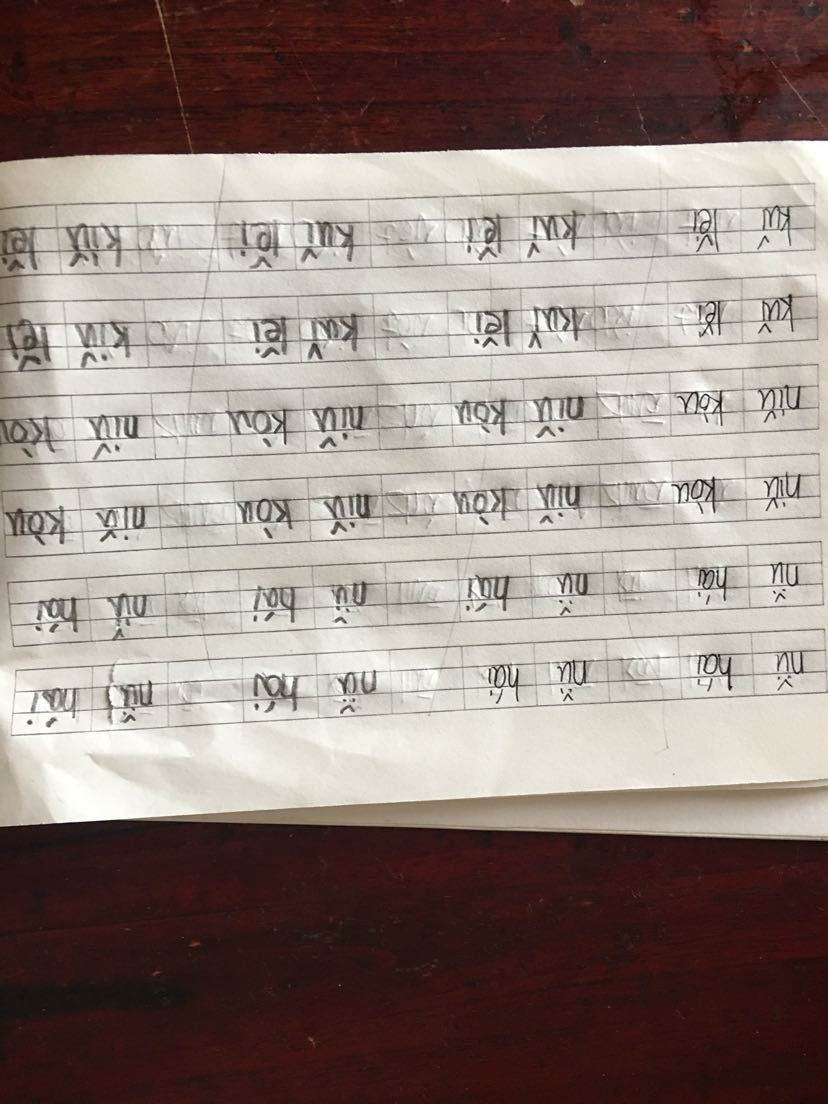 nǚ hái nǚ hái nǚ hái nǚ hái
nǚ hái nǚ hái nǚ hái nǚ hái
niǔ kòu niǔ kòu niǔ kòu niǔ kòu
niǔ kòu niǔ kòu niǔ kòu niǔ kòu
kǔ lěi kuǐ lěi kuǐ lěi kiǔ lěi
kǔ lěi kuǐ lěi kuǐ lěi kiǔ lěi